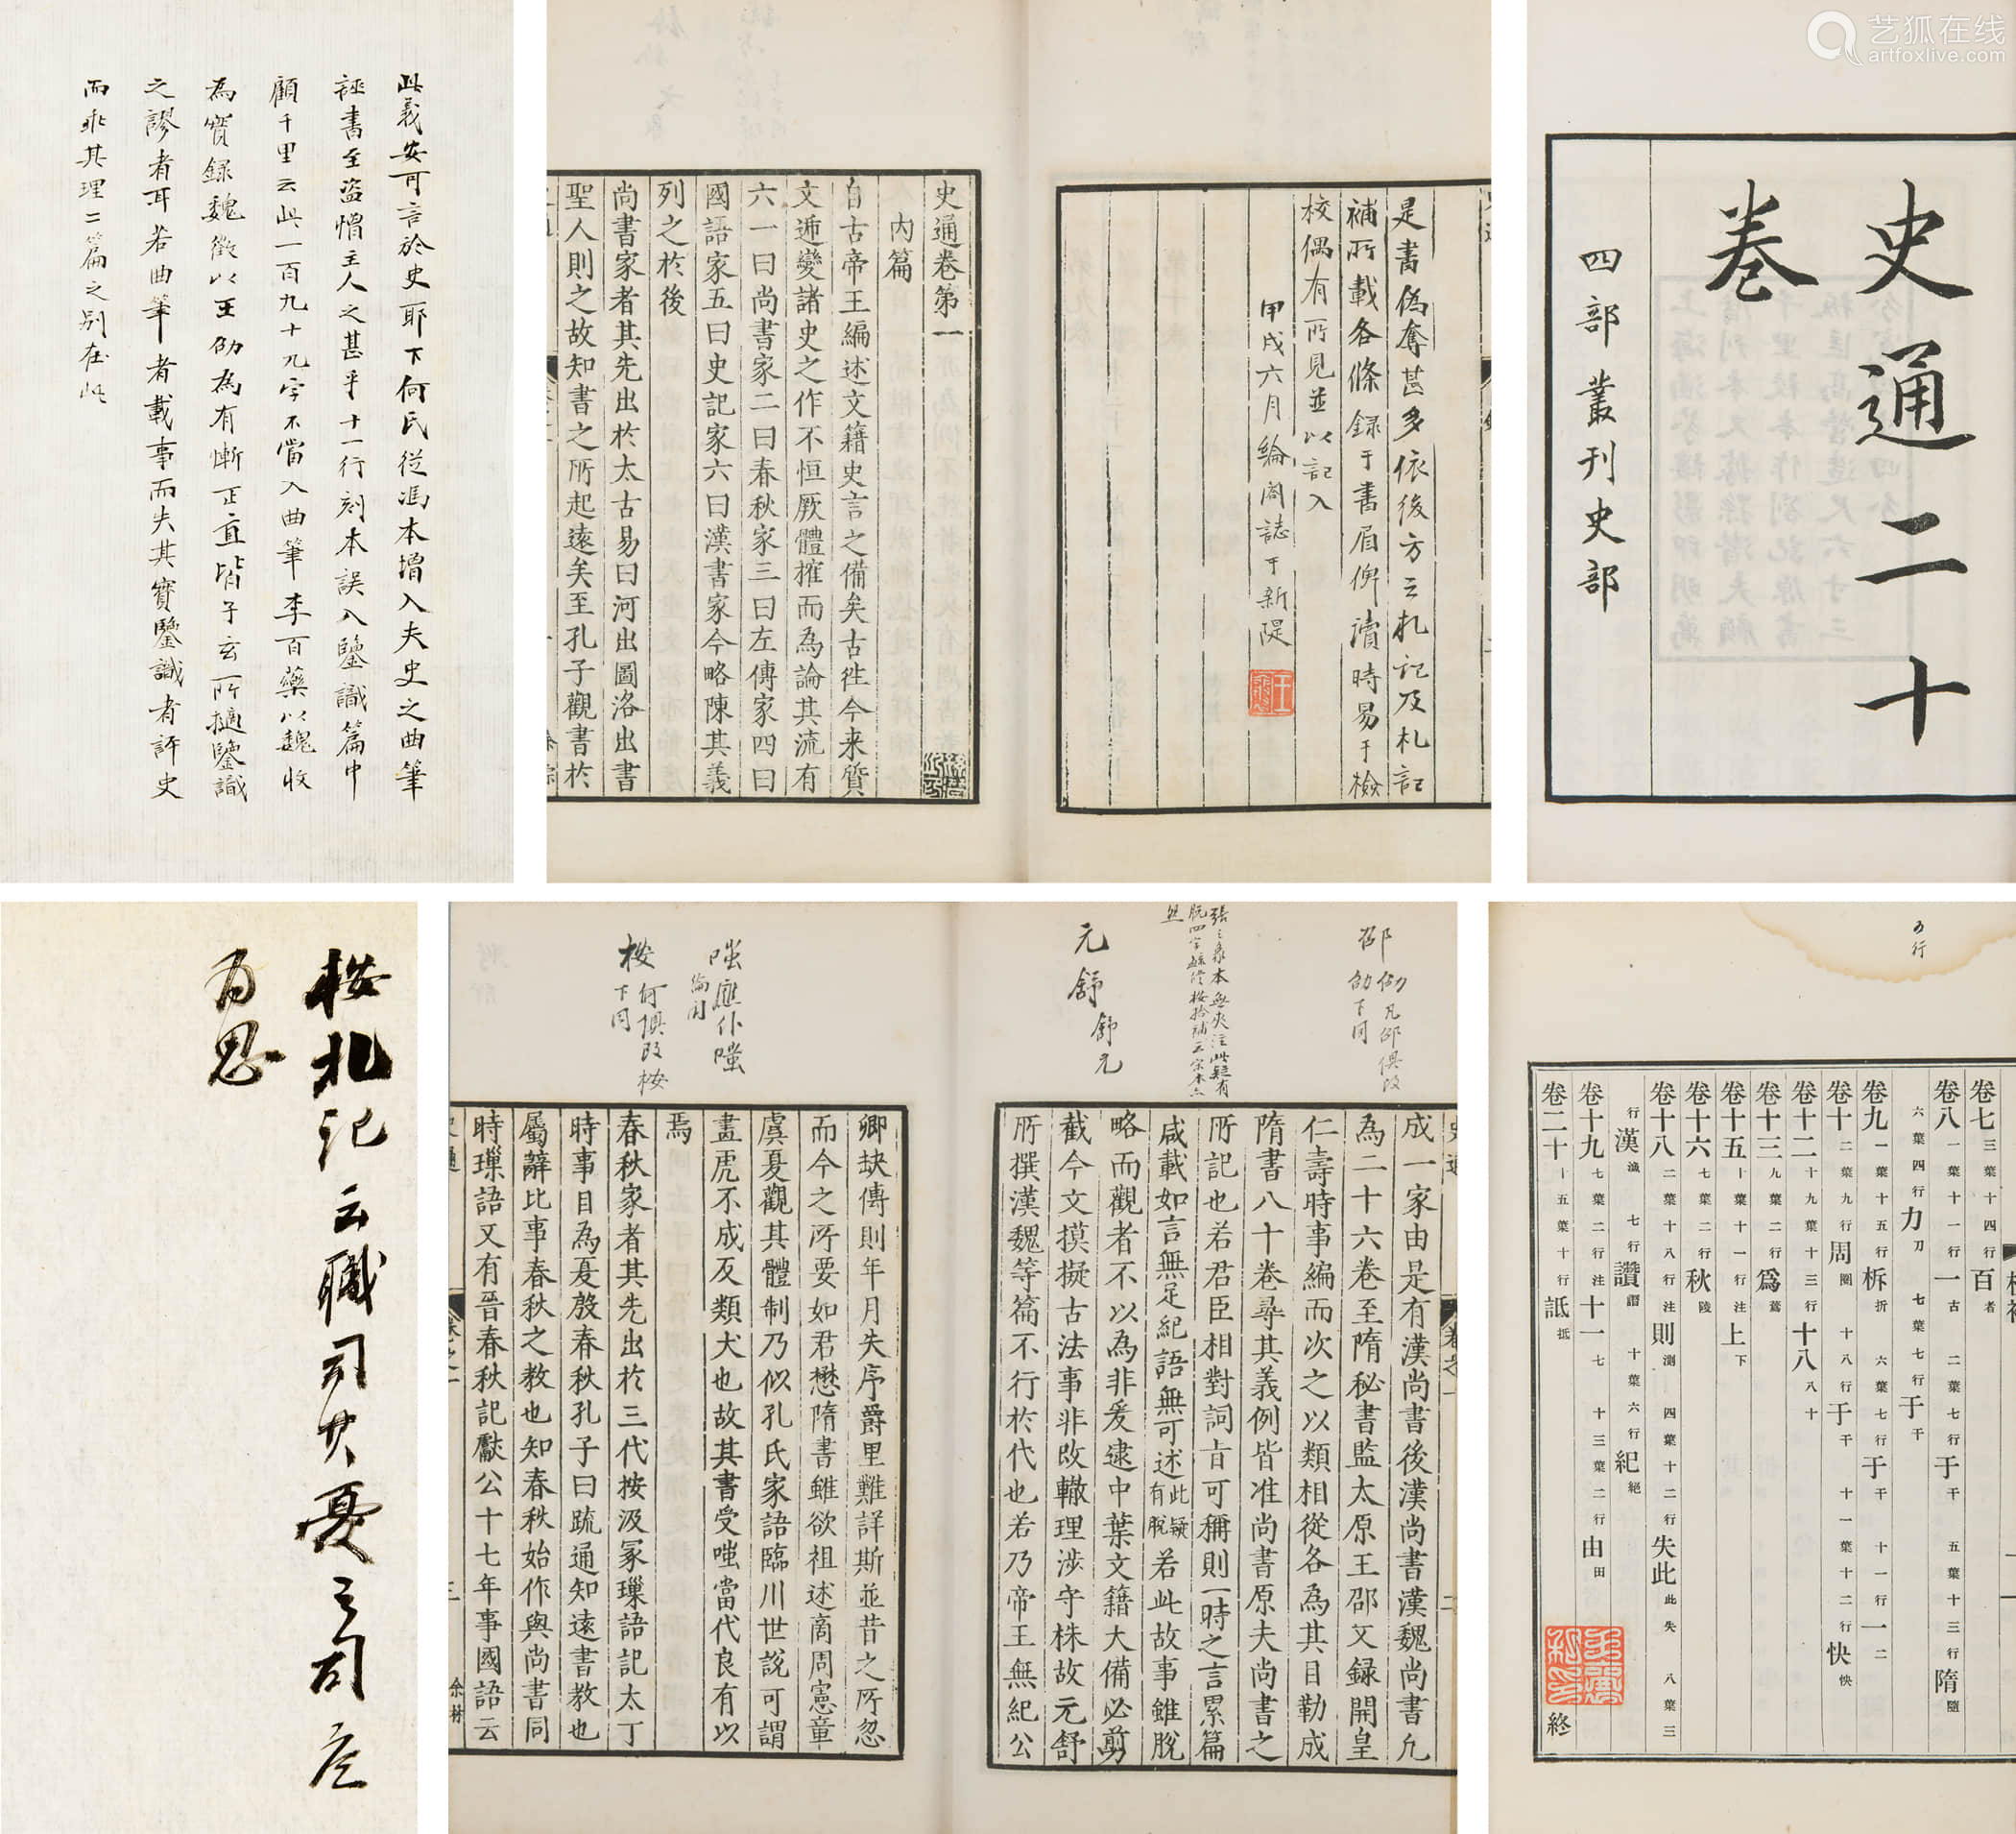 艺狐在线
artfoxlive.com
此義安可言於史耶下何氏從馮本增入夫史之曲筆
誣書至盜憎主人之甚乎十一行刻本誤入鑒識篇中
顧千里云此一百九十九字不當入曲筆李百藥以魏收
為實録魏徵以王劭為有慚正直皆子玄所擿鑒識
之謬者耳若曲筆者載事而失其實鑒識者許史
而乖其理二篇之别在此
是書偽奪甚多依後方之札記及札記
補所載各條録于書眉俾讀時易于檢
校偶有所見並以記入
甲戌六月綸閣誌于新隄
史通卷第一
内篇
自古帝王編述文籍史言之備矣古往今来質
文遞變諸史之作不恒厥體搉而為論其流有
六一曰尚書家二曰春秋家三曰左傳家四曰
國語家五曰史記家六曰漢書家今略陳其義
列之於後
尚書家者其先出於太古易曰河出圖洛出書
聖人則之故知書之所起遠矣至孔子觀書於
史通二十
卷
四部叢刊史部
按札記云職司其憂之司应
为思
邵
劭凡邵俱改
劭下同
張之象本無夾注此疑有
脱四字
然
元舒
舒元
成一家由是有漢尚書後漢尚書漢魏尚書凡
為二十六卷至隋秘書監太原王邵又録開皇
仁壽時事編而次之以類相從各為其目勒成
隋書八十卷尋其義例皆准尚書原夫尚書之
所記也若君臣相對詞旨可稱則一時之言累篇
咸載如言無足紀語無可述此疑有脱若此故事雖脱
略而觀者不以為非爰逮中葉文籍大備必剪
截今文摸擬古法事非改轍理涉守株故元舒
所撰漢魏等篇不行於代也若乃帝王無紀公
嗤應作嗤
按
何俱改按
下同
卿缺傳則年月失序爵里難詳斯並昔之所忽
而今之所要如君懋隋書雖欲祖述商周憲章
虞夏觀其體制乃似孔氏家語臨川世説可謂
畫虎不成反類犬也故其書受嗤當代良有以
焉
春秋家者其先出於三代按汲冢璅語記太丁
時事目為夏殷春秋孔子曰疏通知遠書教也
屬辭比事春秋之教也知春秋始作與尚書同
時璅語又有晉春秋記獻公十七年事國語云
卷七 三葉十四行百者
卷八 一葉十一行一古 二葉七行于干 五葉十三行隋隨
六葉四行力刀 七葉七行于干
卷九 一葉十五行柝折 六葉七行于干 十一行一二
卷十 二葉九行周圈 十八行于干 十一葉十二行快怏
卷十二 十九葉十三行十八八十
卷十三 九葉二行爲蔿
卷十五 十葉十一行注上下
卷十六 七葉二行秋陵
卷十八 二葉十八行注則測 四葉十二行失此此失 八葉三
行漢漁 七行讚譖 十葉六行紀絕
卷十九 七葉二行注十一七 十三葉二行由田
卷二十 十五葉十行詆抵
終